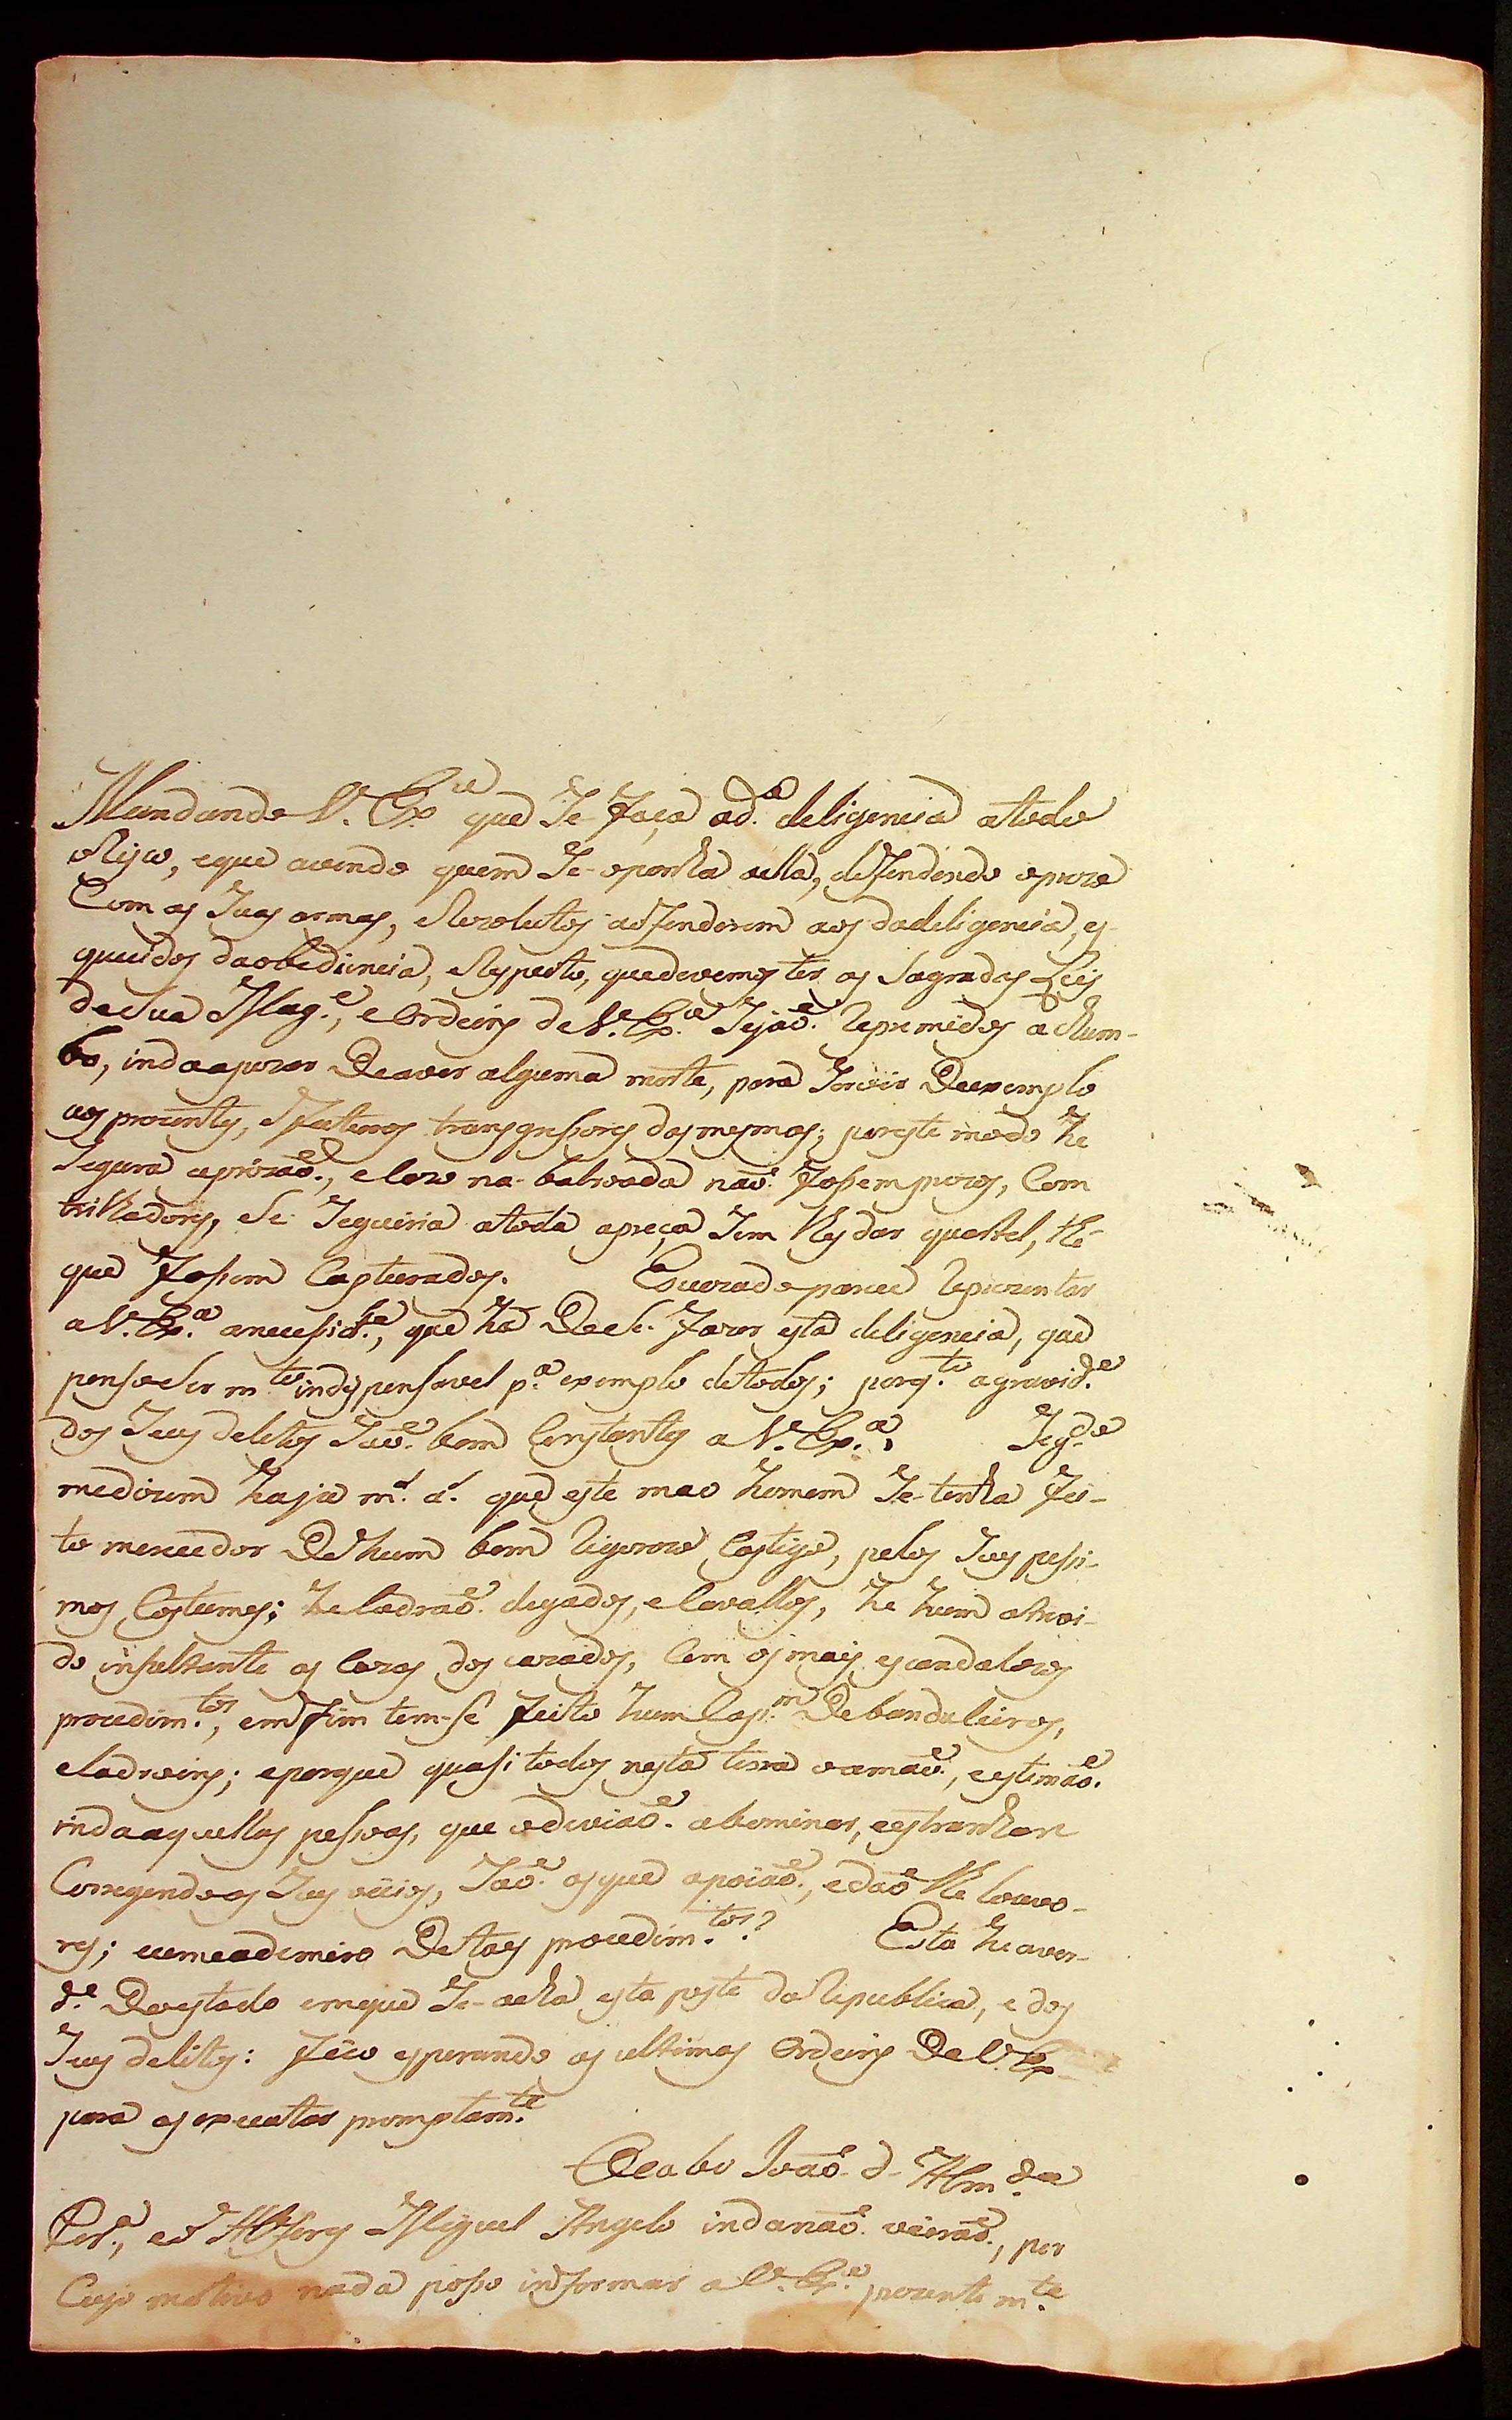 Mandando V. Ex.ª que Se-faça ad.ª deligencia atodo
oRisco, eque avendo quem Se-oponha aella, defendendo oprezo
Com as Suas armas, eRezolutos aofenderem aos dadeligencia, es-
quecidos daobediencia, eRespeito, quedevemos ter as Sagradas Leis
deSua Mag.e, eOrdeins deV. Ex.ª Sejaõ. Reprimidos achum-
bo, indaapezar Deaver alguma morte, para Servir Deexemplo
aos prezentes, eFuturos transgressores dasmesmas; poreste modo he
Segura aprizaõ., eCazo na-balroada naõ. Fossem prezos, Com
trilhadores, eSe Seguiria atoda apreça Sem lhesdar quartel, thé
que Fossem Capturados. Escuzado parece Reprezentar
aV. Ex.ª anecessid.e, que há DeeSe. Fazer esta deligencia, que
pensoeSer m.to indispensavel p.ª exemplo detodos; porq.to agravid.e
dos Seus delitos Saõ. bem Constantes a V. Ex.ª. Seg.do
medizem haja m.s a.s que este mao homem Se-tenha Fei-
to merecedor Dehum bem Rigorozo Castigo, pelos Seus pessi-
mos Costumes; heladraõ. degados, eCavallos, he hum atrevi-
do insultante as Cazas dos cazados, Com osmais escandalozos
procedim.tos, emfim tem-se feito hum Cap.m Debandaleiros,
eladroins; eporque quasi todos nesta terra oamaõ., eestimaõ.
indaaquellas pessoas, que odeviaõ. abominar, eestranhar
Corregendoos Seus vicios, Saõ. asque apoiaõ., edaõ lhe louvo-
res; eumeadimiro Detaes procedim.tos? Esta heaver-
d.e Doestado emque Se-acha esta peste daRepublica, edos
Seus delitos: Fico esperando as ultimas Ordeins DeV. Ex
para as executar promptam.te
OCabo Joaõ d- Alm.da
Per.ª, eo Alferes Miguel Angelo indanaõ. vieraõ., por
Cujo motivo nada posso informar aV. Ex.ª prezentem.te